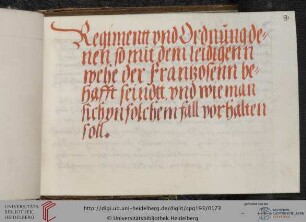 Regimentt vnd Ordnung de-
nen so mit dem leidigenn
wehe der Frantzosenn be-
hafft seindtt vnd wie man
sich jn solchem fall vorhalten
soll.
UNIVERSITÄTS-
BIBLIOTHEK
HEIDELBERG
http://digi.ub.uni-heidelberg.de/diglit/cpg193/0173
© Universitätsbibliothek Heidelberg